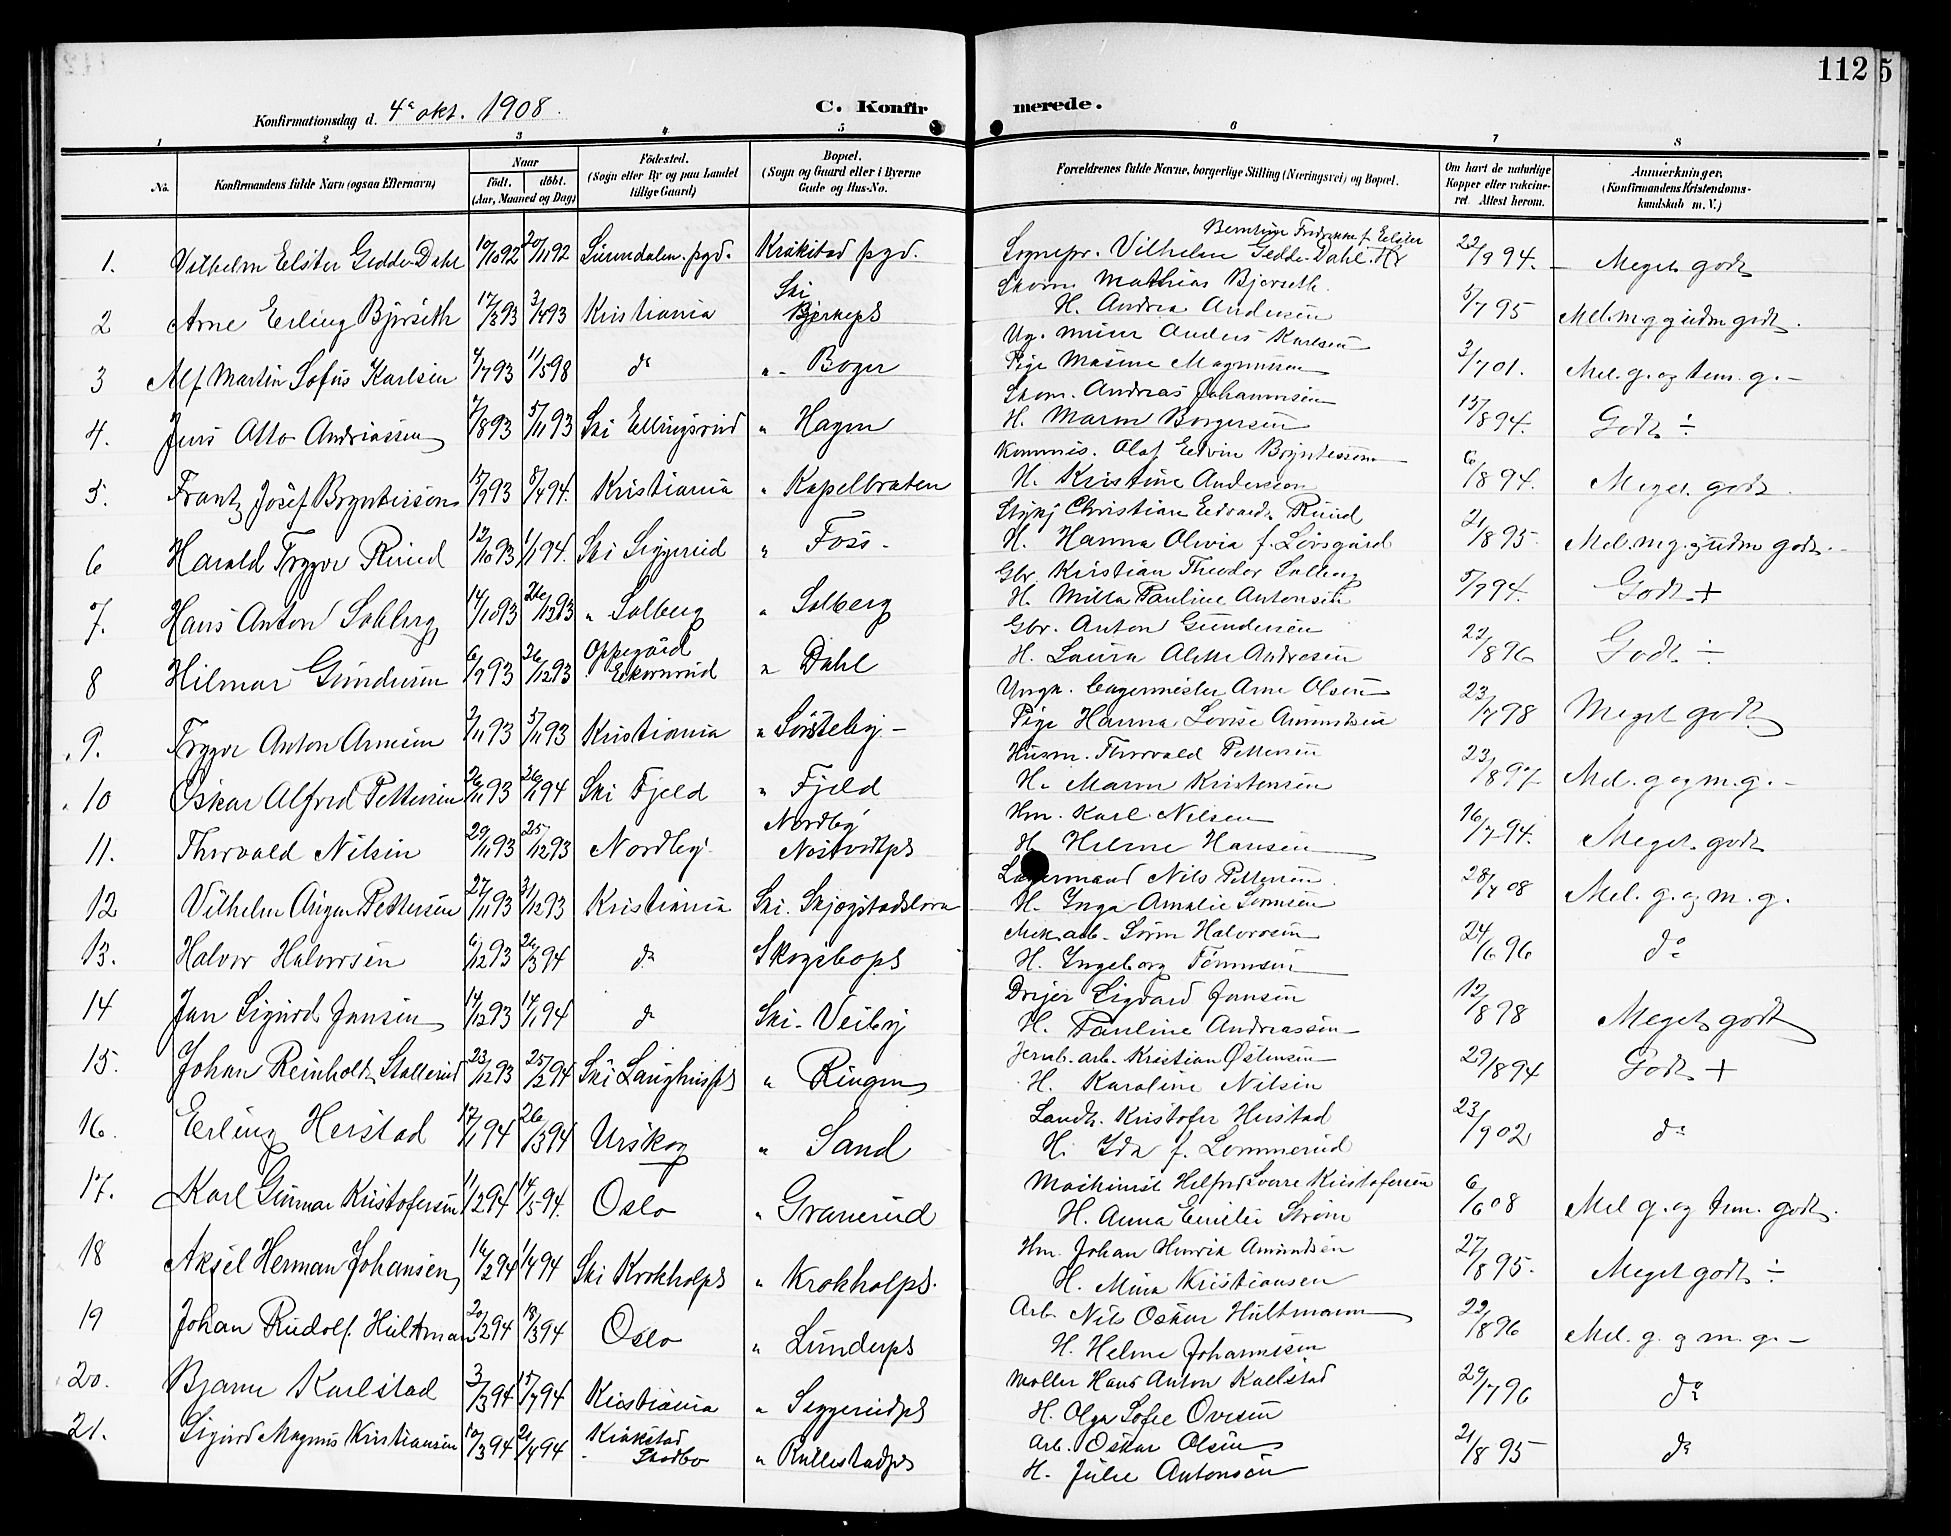 112
5
Konfirmationsdag d. 4de okt. 1908.
C. Konfirmerede.
1 2 3 4 5 6 7 8
No.
Konfirmandens fulde Navn (ogsaa Efternavn)
Naar
født. døbt.
(Aar, Maaned og Dag)
Fødested.
(Sogn eller By og paa Landet
tillige Gaard)
Bopæl.
(Sogn og Gaard eller i Byerne
Gade og Hus-No.
Forældrenes fulde Navne, borgerlige Stilling (Næringsvei) og Bopæl.
Om havt de naturlige
Kopper eller vakcine-
ret. Attest herom.
Anmærkninger,
(Konfirmandens Kristendoms-
kundskab m. V.)
1. Vilhelm Elster Gedde-Dahl 10/10 92 20/11 92 Surendalen pgd. Kråkstad pgd. Sognepr. Vilhelm Gedde-Dahl. H. Berntine Fredrikke f. Elster 22/9 94. Meget godt
2 Arne Erling Bjørseth 17/3 93 3/4 93 Kristiania Ski Bjerkeps Skom. Mathias Bjerseth.
H. Andrea Andersen 5/7 95 Mel. m. g. og udm godt.
3 Alf Martin Sofus Karlsen 4/7 93 11/5 98 do " Boger Ug. murer Anders Karlsen
Pige Masine Magnussen 3/7 01. Mel. g. og tem. g. -
4. Jens Otto Andreassen 7/8 93 5/11 93 Ski Ellingsrud " Hagen Skom. Andreas Johannesen
H. Maren Borgersen 15/8 94. Godt ÷
5. Frantz Josef Bryntesson 15/9 93 8/4 94. Kristiania " Kapelbraten Kommis. Olaf Edvin Bryntesson
H. Kristine Anderson 6/8 94. Meget godt.
6 Harald Trygve Ruud 12/10 93 1/1 94. Ski Siggerud " Foss - Christian Edvard Ruud
H. Hanna Olivia f. Løvsgård 21/8 95. Mel. m. g. og udm godt. -
7. Hans Anton Solberg 14/10 93 26/12 93 " Solberg " Solberg Gbr. Kristian Theodor Solberg
H. Milla Pauline Antonsen 5/7 94. Godt +
8 Hilmar Gundersen 6/9 93 26/12 93 Oppegård Ekornrud " Dahl Gbr. Anton Gundersen
H. Laura Alette Andresen 22/8 96 Godt ÷
9. Trygve Anton Arnesen 2/11 93 5/11 93 Kristiania " Sørsteby - Ungk. Arne Olsen
Pige Hanna Lovise Amundsen 23/7 98 Meget godt
10 Oskar Alfred Pettersen 26/11 93 26/1 94 Ski Fjeld " Fjeld Husm. Thorvald Pettersen
H. Maren Kristensen 23/8 97. Mel. g. og m. g. -
11. Thorvald Nilsen 29/11 93 25/12 93 Nordby Nordby Nostvedtps Hm. Karl Nilsen
H. Helene Hansen 16/7 94. Meget godt
12 Vilhelm Aagar Pettersen 27/11 93 31/12 93 Kristiania Ski. Skjøgstadslora Lagermand Nils Pettersen
H. Inga Amalie Sørensen 28/7 08 Mel. g. og m. g.
13. Halvor Halvorsen 6/12 93 26/3 94 do Skogsbops Mek. arb. Søren Halvorsen
H. Ingeborg Tønnesen 24/6 96 do
14 Jan Sigurd Jansen 14/12 93 14/1 94 do Ski - Veiby Drejer Sigvard Jansen
H. Pauline Andreassen 12/8 98 Meget godt
15. Johan Reinholdt Stallerud 23/12 93 25/2 94 Ski Langhusps " Ringen Jernb. arb. Kristian Østensen
H. Karoline Nilsen 29/8 94 Godt +
16. Erling Herstad 17/1 94 26/3 94 Urskog " Sand Landh. Kristofer Herstad
H. Ida f. Lommerud 23/9 02 do
17. Karl Gunnar Kristofersen 11/2 94 14/5 94. Oslo " Granerud Maskinist Helfred Sverre Kristofersen
H. Anna Emilie Strøm 6/6 08 Mel g. og tem. godt.
18 Aksel Herman Johansen 16/2 94 1/4 94 Ski Krokholps " Krokholps. Hm. Johan Henrik Amundsen
H. Mina Kristiansen 27/8 95. Meget godt ÷
19 Johan Rudolf Hultman 20/2 94 18/3 94 Oslo " Lunderps Arb. Nils Oskar Hultmann
H. Helene Johannesen 22/8 96 Mel. g. og m. g. -
20. Bjarne Karlstad 3/3 94 15/7 94 Kristiania " Seggerudps Møller Hans Anton Karlstad
H. Olga Sofie Ovesen 29/7 96 do
21. Sigurd Magnus Kristiansen 10/3 94 29/4 94 Kråkstad Skodbo " Rullestadps Arb. Oskar Olsen
H. Julie Antonsen 21/8 95 do